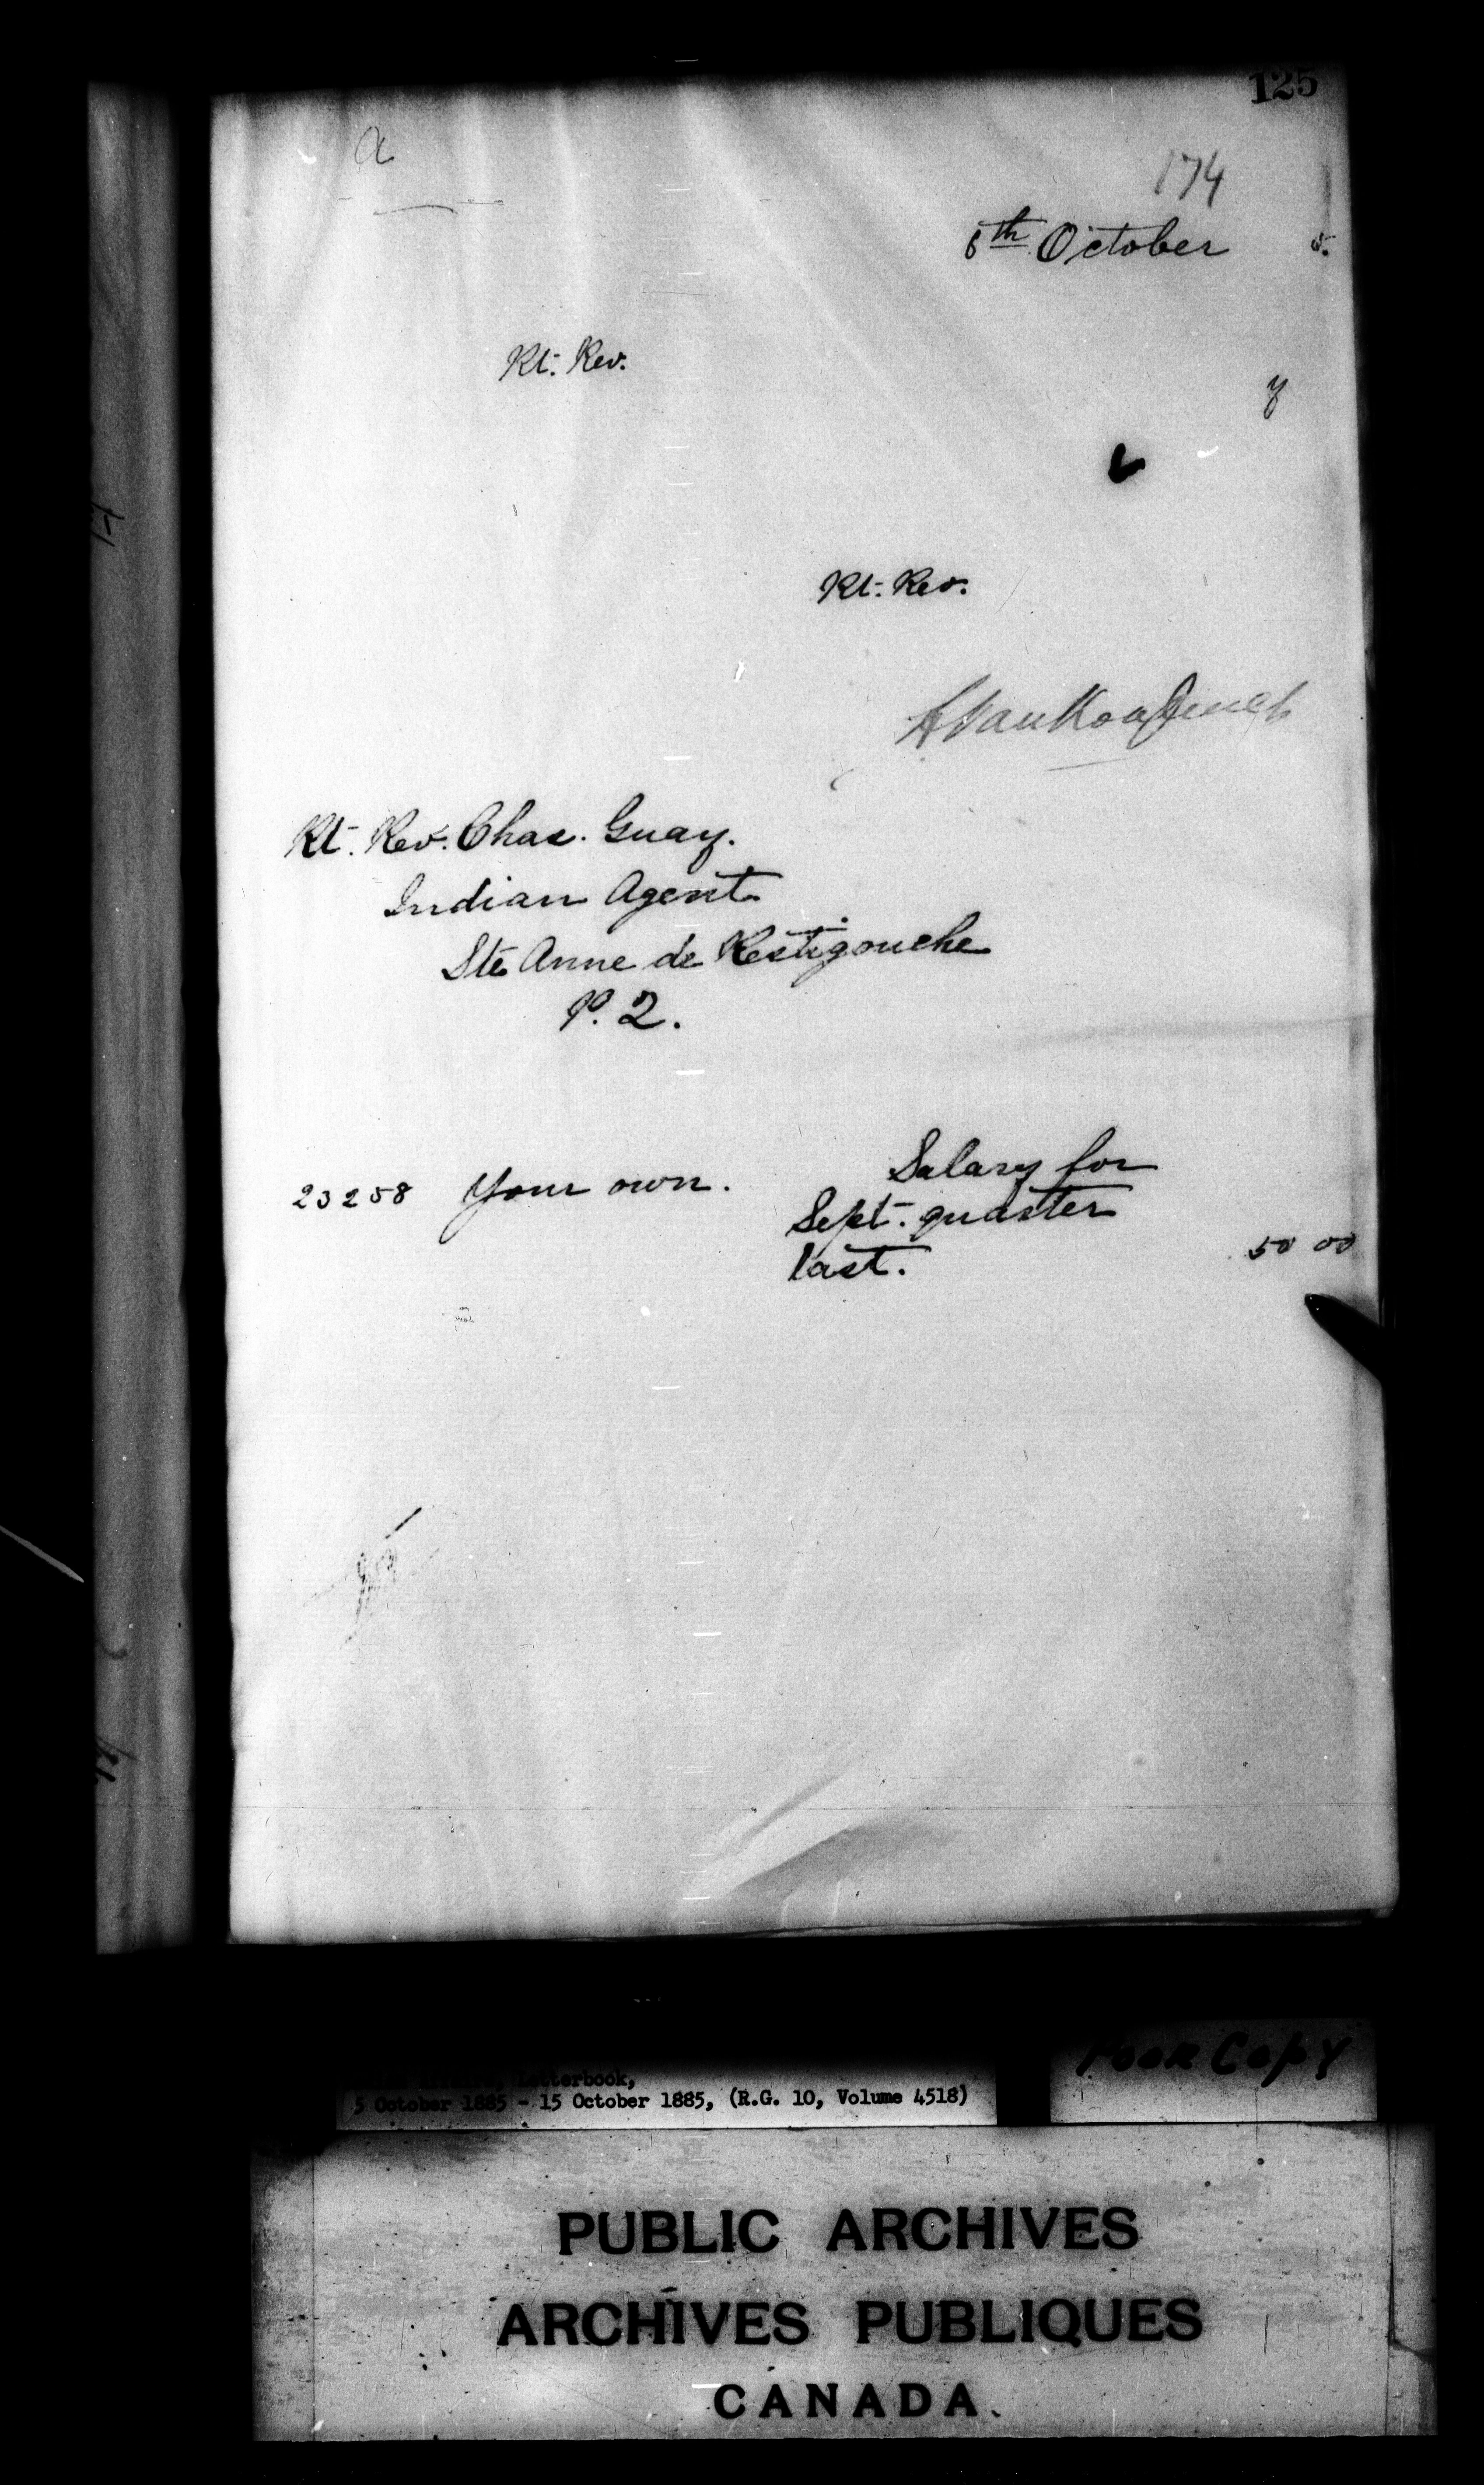 125
a
174
6th October 5.
Rt. Rev.
y
Rt. Rev.
L VanKoughnet
Rt. Rev. Chas. Guay.
Indian Agent
Ste Anne de Restigouche
P. Q.
23258 Your own. Salary for
Sept. quarter
last. 50 00
Poor Copy
Letterbook,
5 October 1885 - 15 October 1885, (R.G. 10, Volume 4518)
PUBLIC ARCHIVES
ARCHIVES PUBLIQUES
CANADA